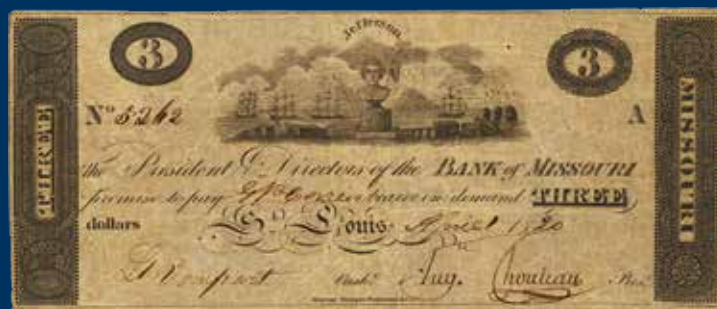 Jefferson
3 3
THREE
No 5262 A
MISSOURI
the President & Directors of the BANK of MISSOURI
promise to pay or bearer on demand THREE
dollars St. Louis April 1820
Cashr. Aug. Chouteau Prest.